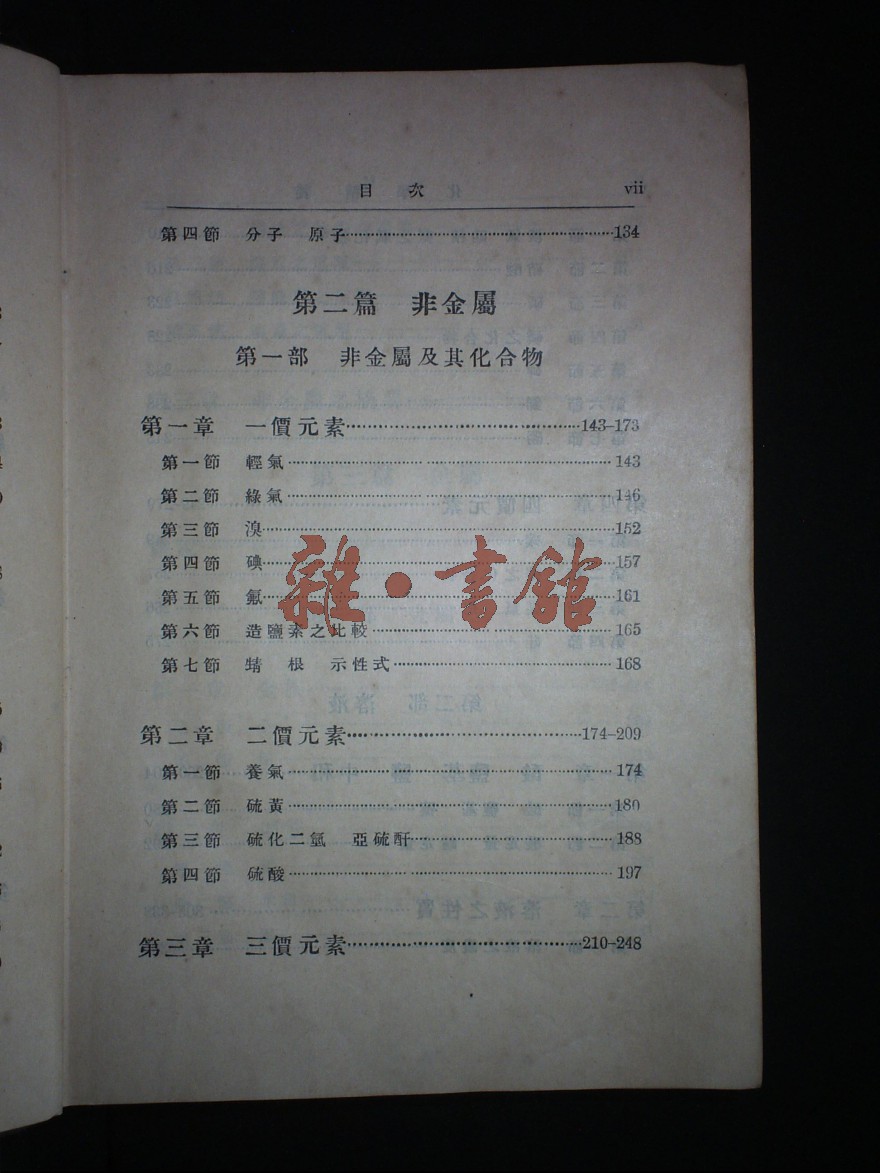 目次 vii
第四節 分子 原子 134
第二篇 非金屬
第一部 非金屬及其化合物
第一章 一價元素 143-173
第一節 輕氣 143
第二節 綠氣 146
第三節 溴 152
第四節 碘 157
第五節 氟 161
第六節 造鹽素之比較 165
第七節 根 示性式 168
第二章 二價元素 174-209
第一節 養氣 174
第二節 硫黃 180
第三節 硫化二氫 亞硫酐 188
第四節 硫酸 197
第三章 三價元素 210-248
雜·書館